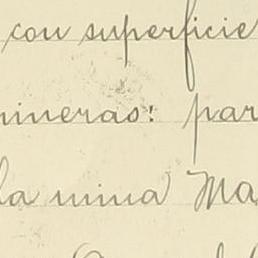 con superficie
mineras: par
la mina Ma